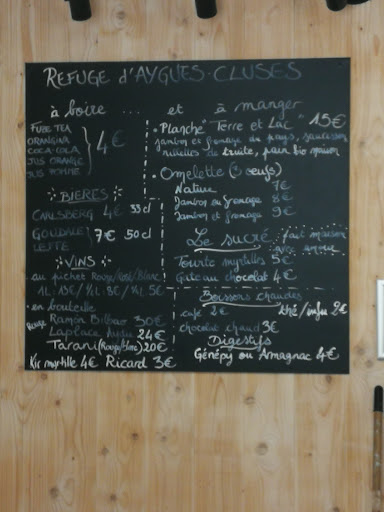 REFUGE d'AYGUES-CLUSES
à boire ... et à manger
FUZE TEA
ORANGINA
COCA-COLA
JUS ORANGE
JUS POMME
4€
BIERES
CARLSBERG 4€ 33cl
GOUDALE
LEFFE
7€ 50cl
VINS
au pichet Rouge/Rosé/Blanc
1L: 15€ 1/2L: 8€ 1/4L 5€
en bouteille
Rouge Ramón Bilbao 30€
Laplace 24€
Tarani (Rouge/Blanc) 20€
Kir myrtille 4€ Ricard 3€
• Planche "Terre et Lac" 15€
jambon et fromage de pays, saucisson
rillettes de truite, pain bio maison
• Omelette (3 oeufs)
Nature 7€
Jambon ou fromage 8€
Jambon et fromage 9€
Le sucré : fait maison
avec amour
Tourte myrtilles 5€
Gâteau chocolat 4€
Boissons chaudes
café 2€ thé/infu 2€
chocolat chaud 3€
Digestifs
Génépy ou Armagnac 4€